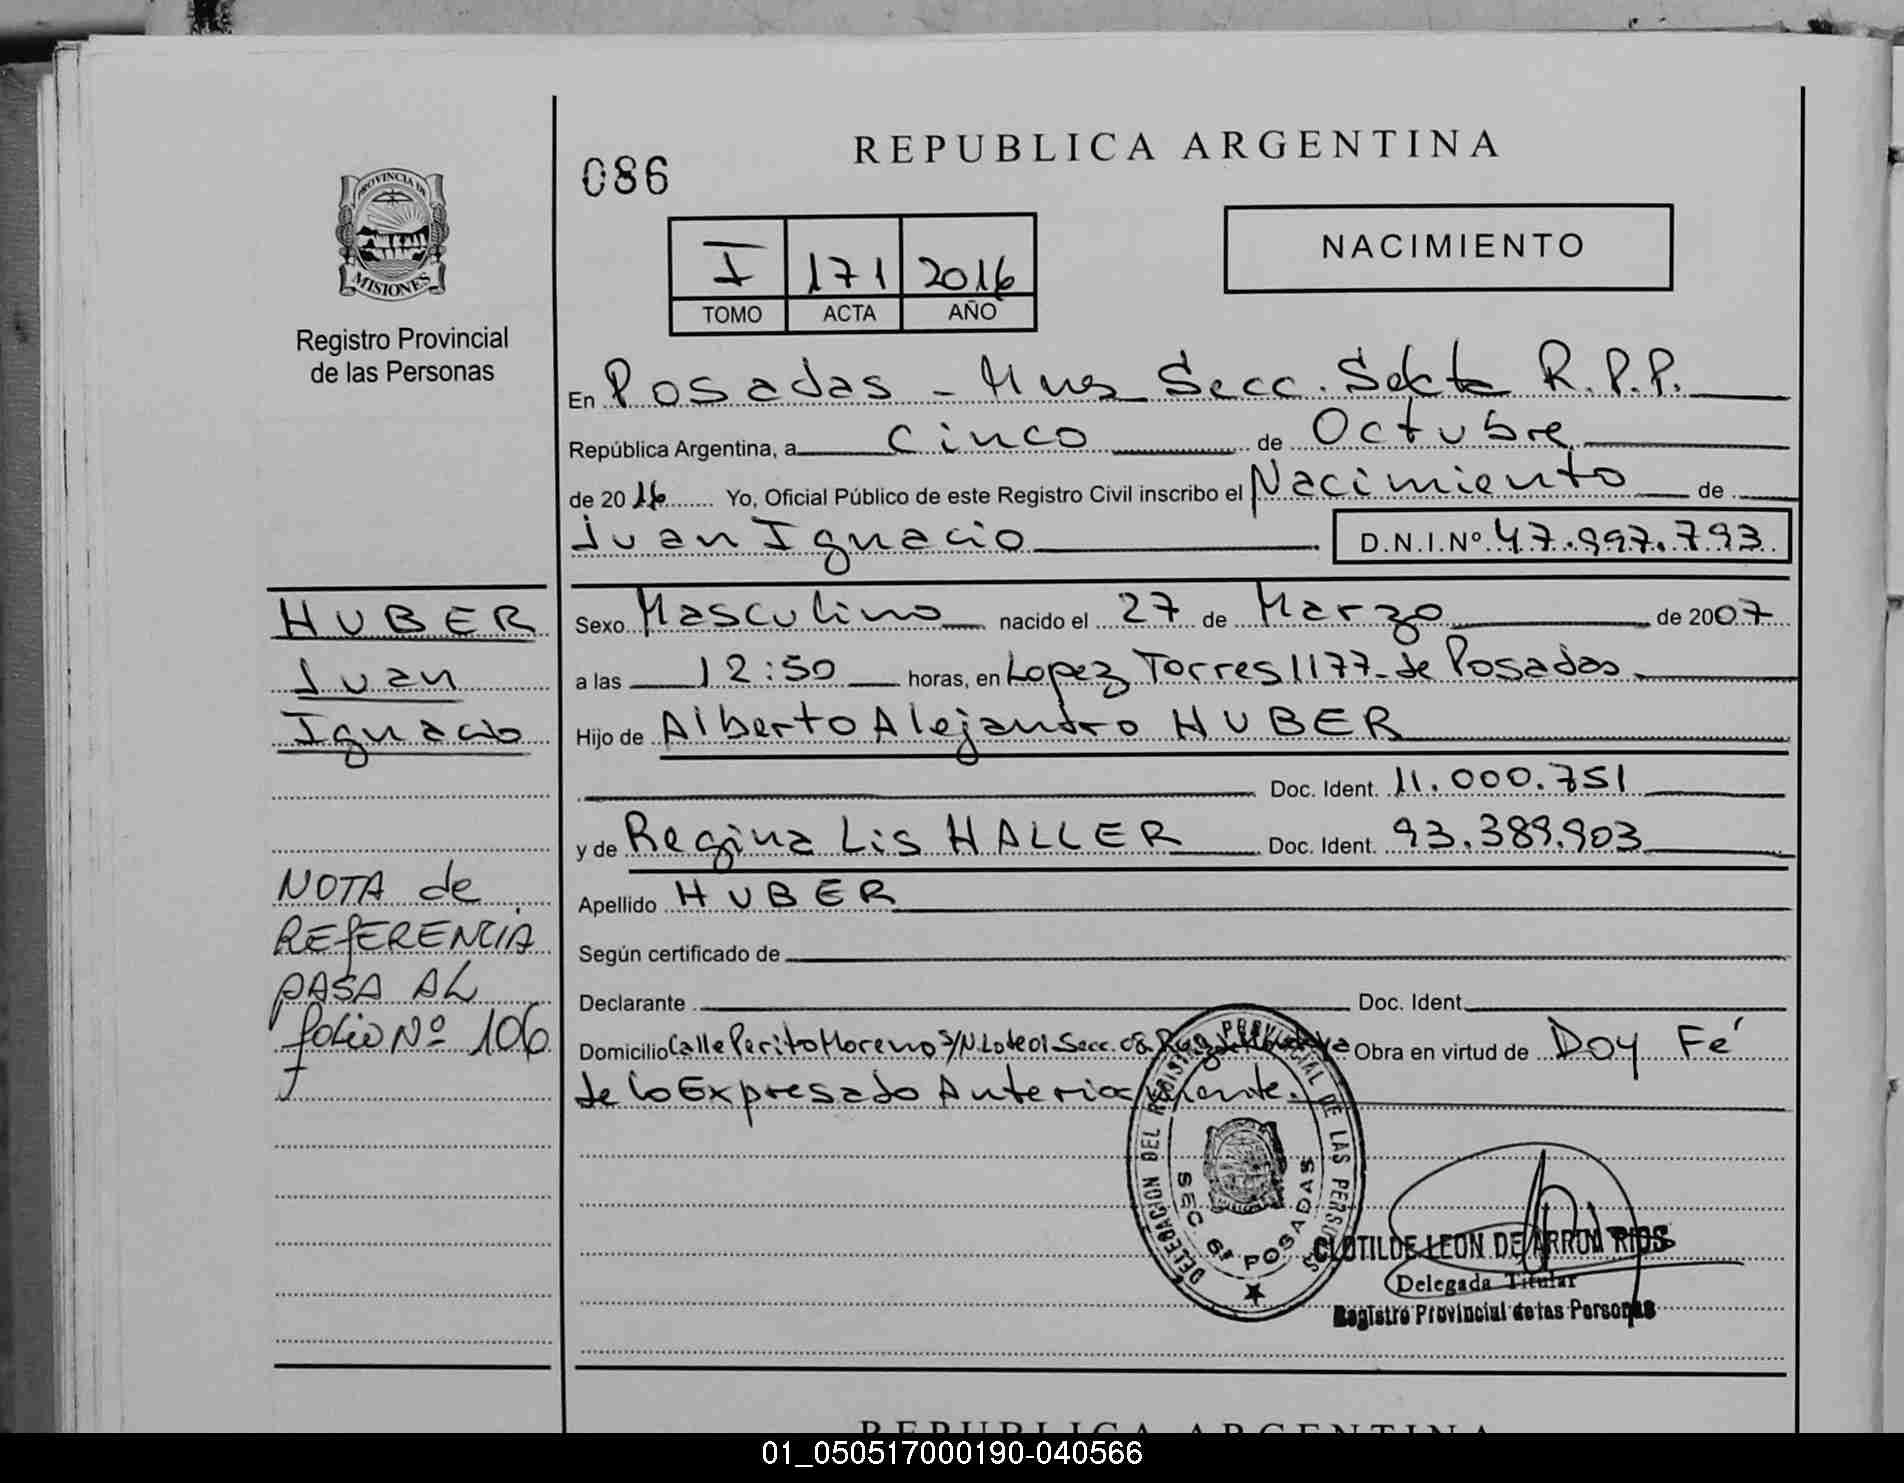 REPUBLICA ARGENTINA
086
PROVINCIA DE
MISIONES
Registro Provincial
de las Personas
I 171 2016
TOMO ACTA AÑO
NACIMIENTO
En Posadas - Mnes Secc. Sexta R.P.P.
República Argentina, a cinco de Octubre
de 2016 Yo, Oficial Público de este Registro Civil inscribo el Nacimiento de
Juan Ignacio D.N.I.Nº 47.997.793
HUBER
Juan
Ignacio
Sexo Masculino nacido el 27 de Marzo de 2007
a las 12:50 horas, en Lopez Torres 1177 - de Posadas
Hijo de Alberto Alejandro HUBER
Doc. Ident. 11.000.751
y de Regina Lis HALLER Doc. Ident. 93.389.903
Apellido HUBER
Según certificado de
Declarante Doc. Ident.
Domicilio Calle Perito Moreno S/N Lote 01 Secc. 08 Obra en virtud de Doy Fé
de lo Expresado Anteriormente.
NOTA de
REFERENCIA
PASA AL
folio Nº 106
DELEGACION DEL REGISTRO PROVINCIAL DE LAS PERSONAS
SEC. 6ª POSADAS
CLOTILDE LEON DE ARROM RIOS
Delegada Titular
Registro Provincial de las Personas
REPUBLICA ARGENTINA
01_050517000190-040566